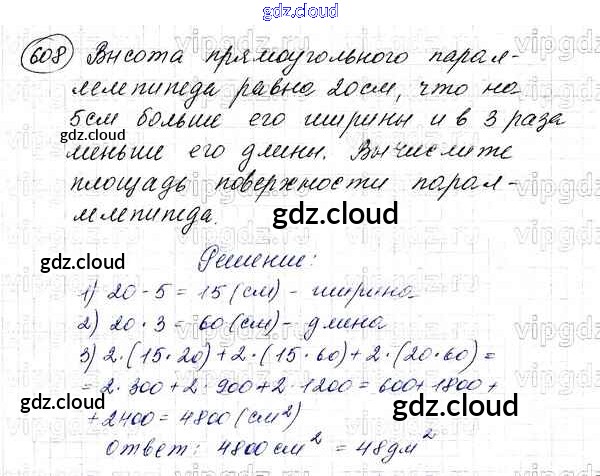 gdz.cloud
608 Высота прямоугольного парал-
лелепипеда равна 20см, что на
5см больше его ширины и в 3 раза
gdz.cloud
меньше его длины. Вычислите
площадь поверхности парал-
лелепипеда.
gdz.cloud
Решение:
gdz.cloud
1) 20 - 5 = 15 (см) - ширина
2) 20 · 3 = 60 (см) - длина
3) 2·(15·20)+2·(15·60)+2·(20·60)=
= 2·300+2·900+2·1200=600+1800+
gdz.cloud
+2400=4800(см²)
gdz.cloud
Ответ: 4800см² = 48дм²